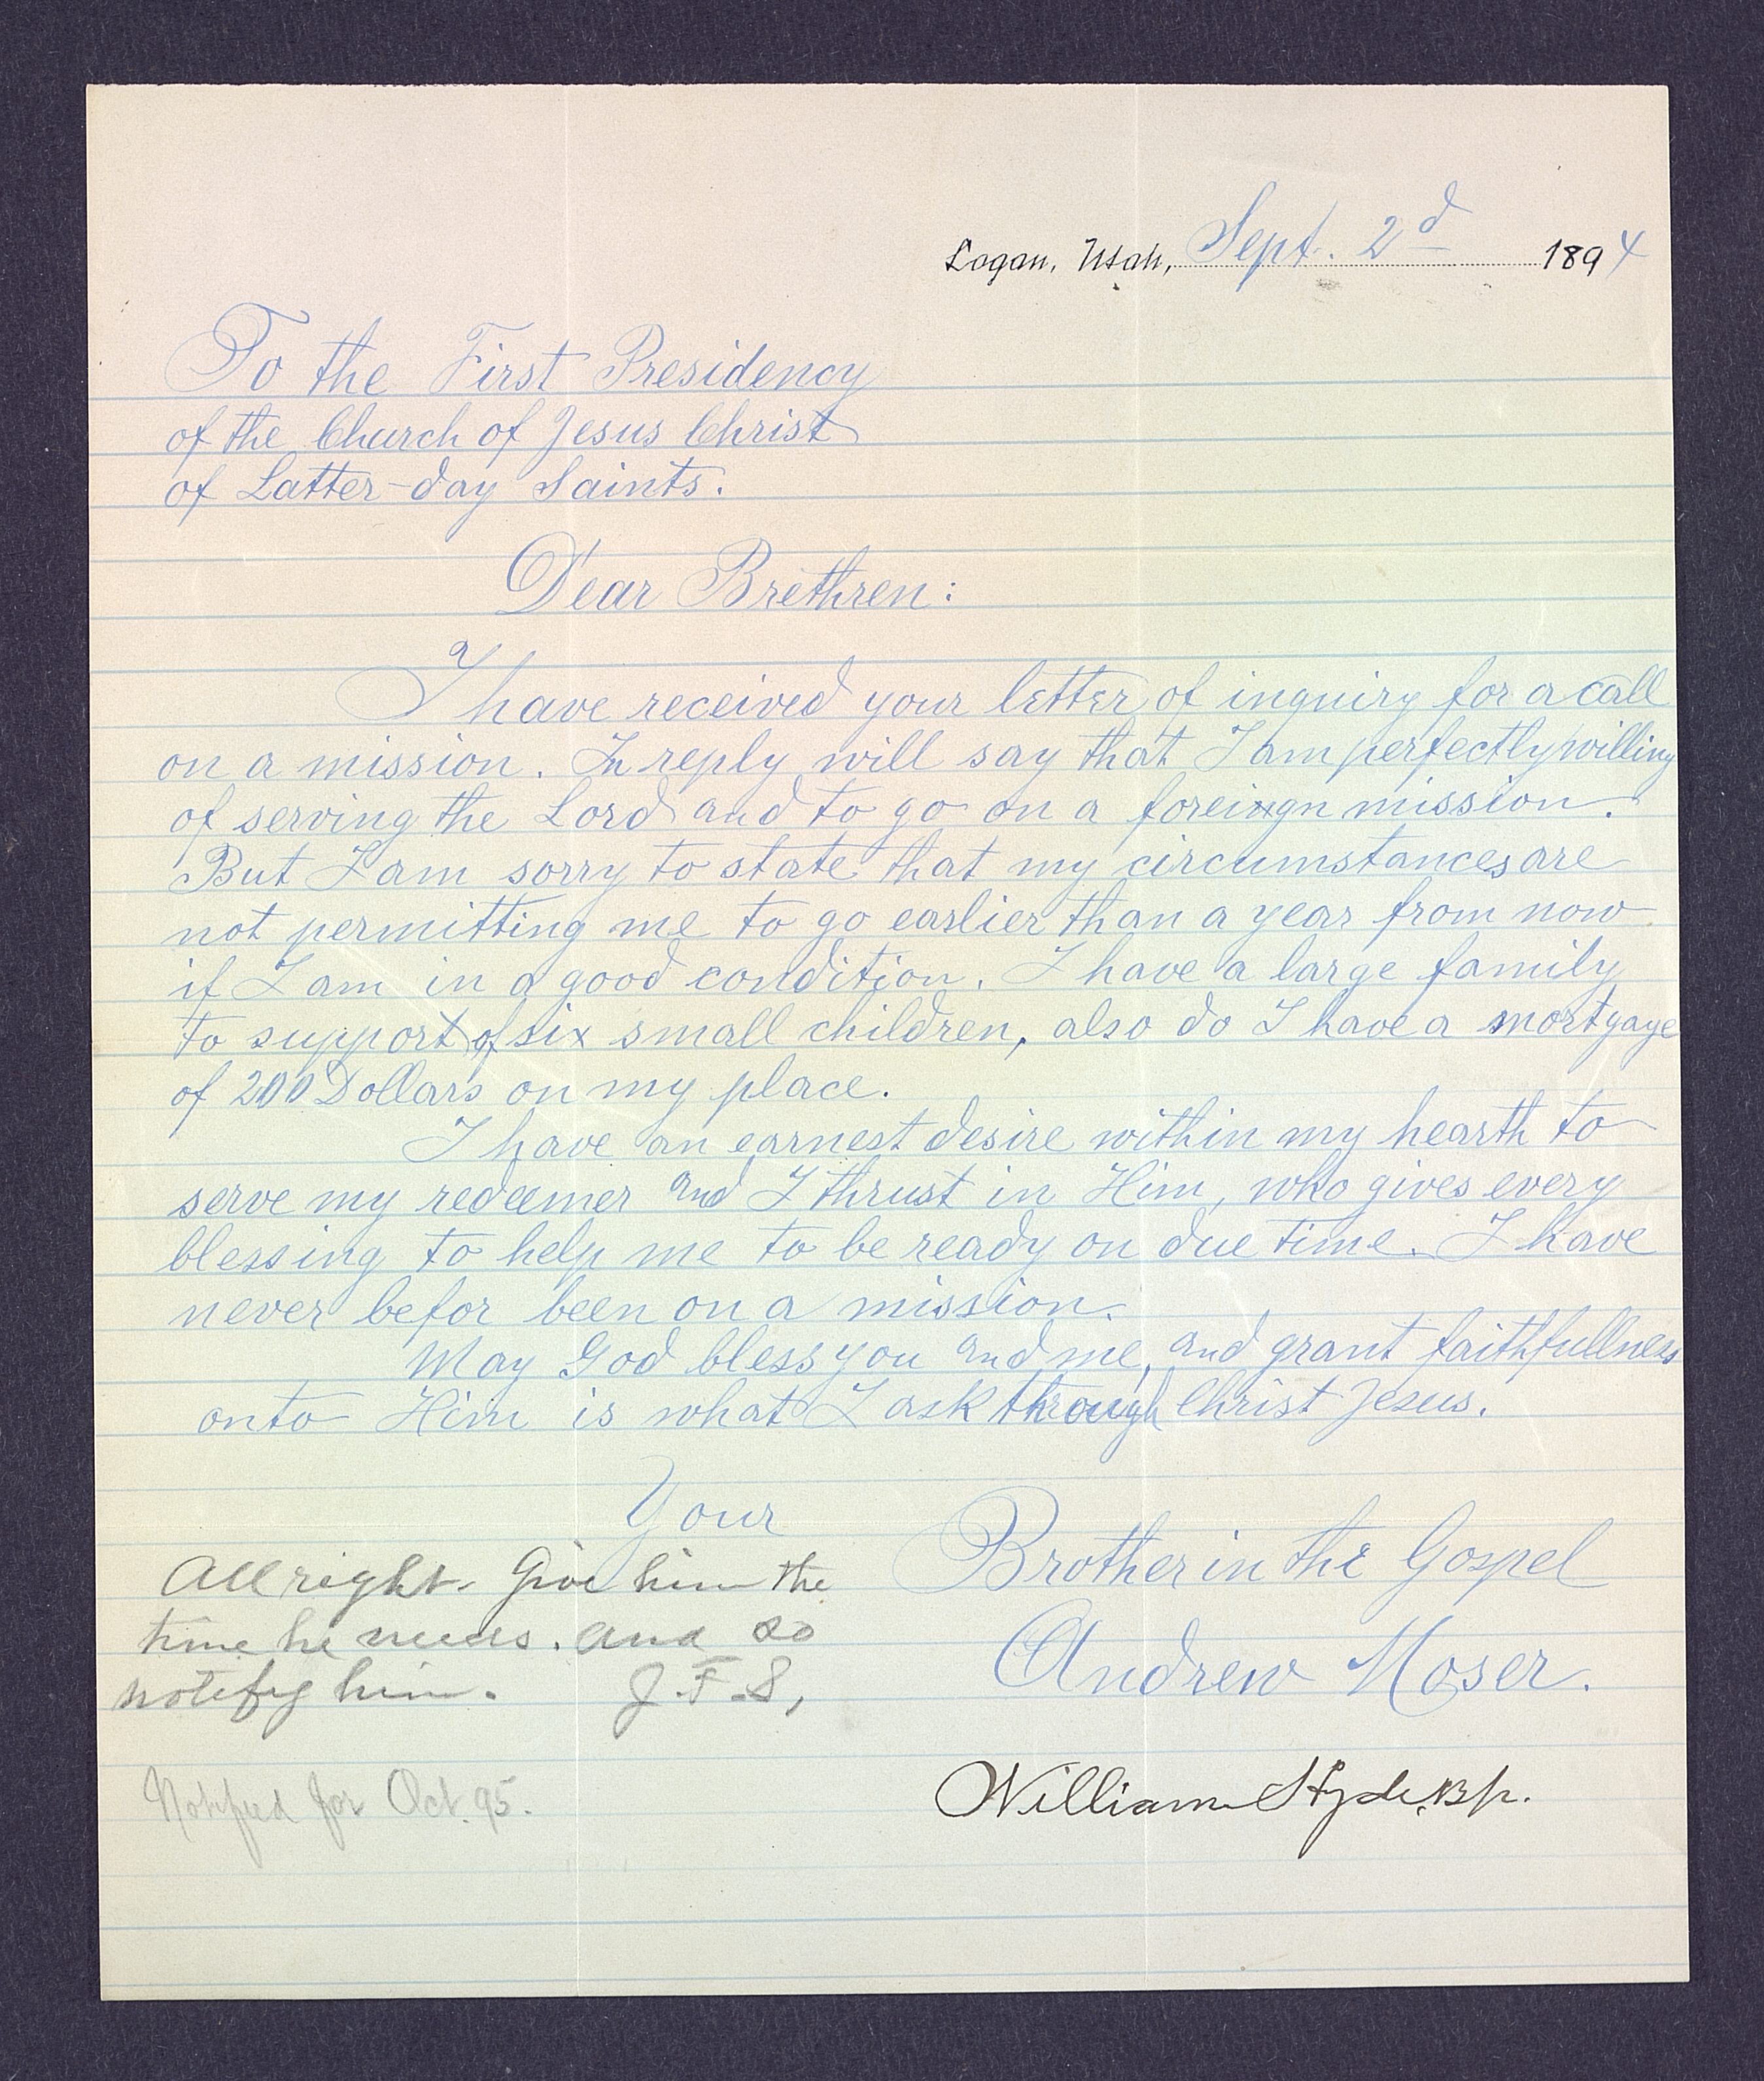 Logan, Utah, Sept. 2d 1894
To the First Presidency
of the Church of Jesus Christ
of Latter-day Saints.
Dear Brethren:
I have received your letter of inquiry for a call
on a mission. In reply will say that I am perfectly willing
of serving the Lord and to go on a foreign mission.
But I am sorry to state that my circumstances are
not permitting me to go earlier than a year from now
if I am in a good condition. I have a large family
to support of six small children, also do I have a mortgage
of 200 Dollars on my place.
I have an earnest desire within my hearth to
serve my redeemer and I thrust in Him, who gives every
blessing to help me to be ready on due time. I have
never befor been on a mission.
May God bless you and me, and grant faithfullness
onto Him is what I ask through Christ Jesus.
Your
Brother in the Gospel
Andrew Moser.
All right. Give him the
time he needs. and so
notify him. J.F.S,
William Hyde, Bp.
Notified for Oct. 95.